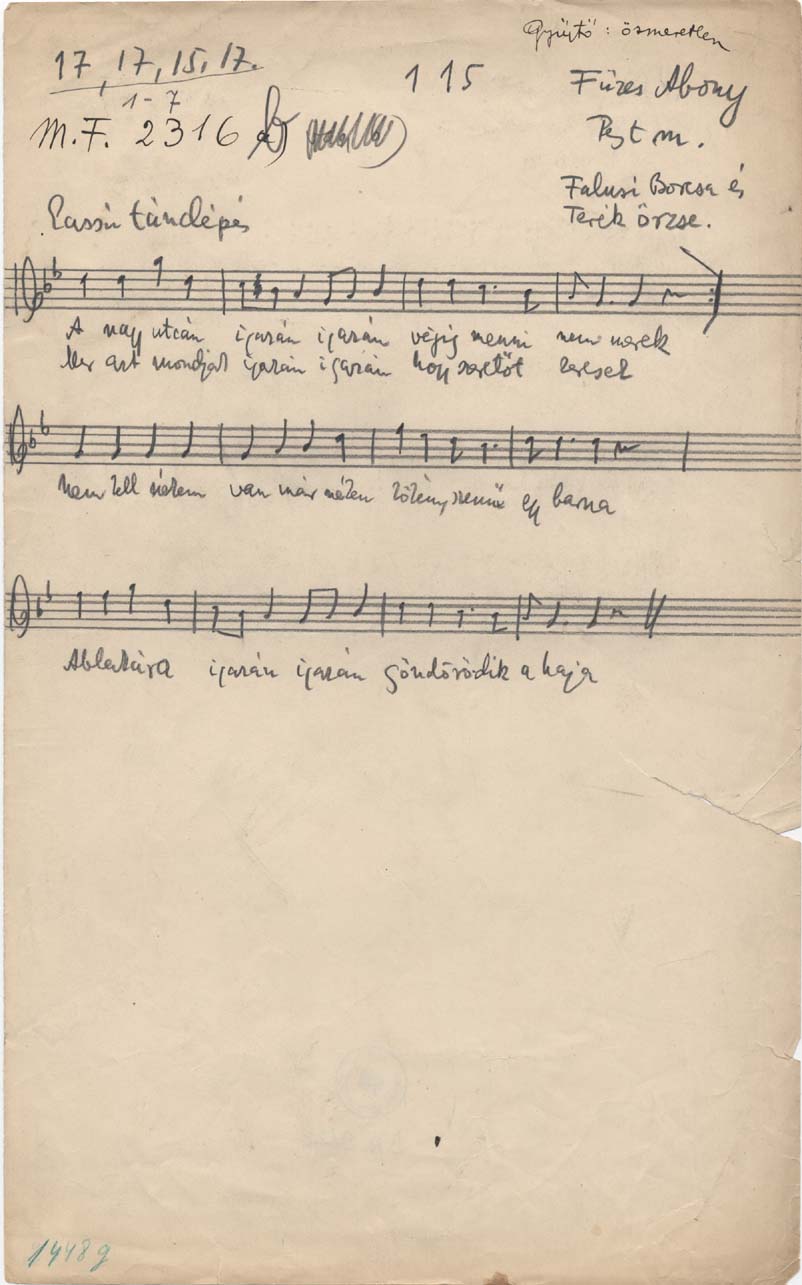 Gyűjtő: ösmeretlen
17, 17, 15, 17.
1 - 7
115
Füzes Abony
M.F. 2316
Pest m.
Falusi Borcsa és
Terék örzse.
Lassú tánclépés
A nagy utcán igazán igazán végig menni nem merek
mondják igazán igazán hogy szeretőt keresek
Nem kell nékem van már nékem kökényszemü egy barna
Ablakára igazán igazán göndörödik a haja
1448g